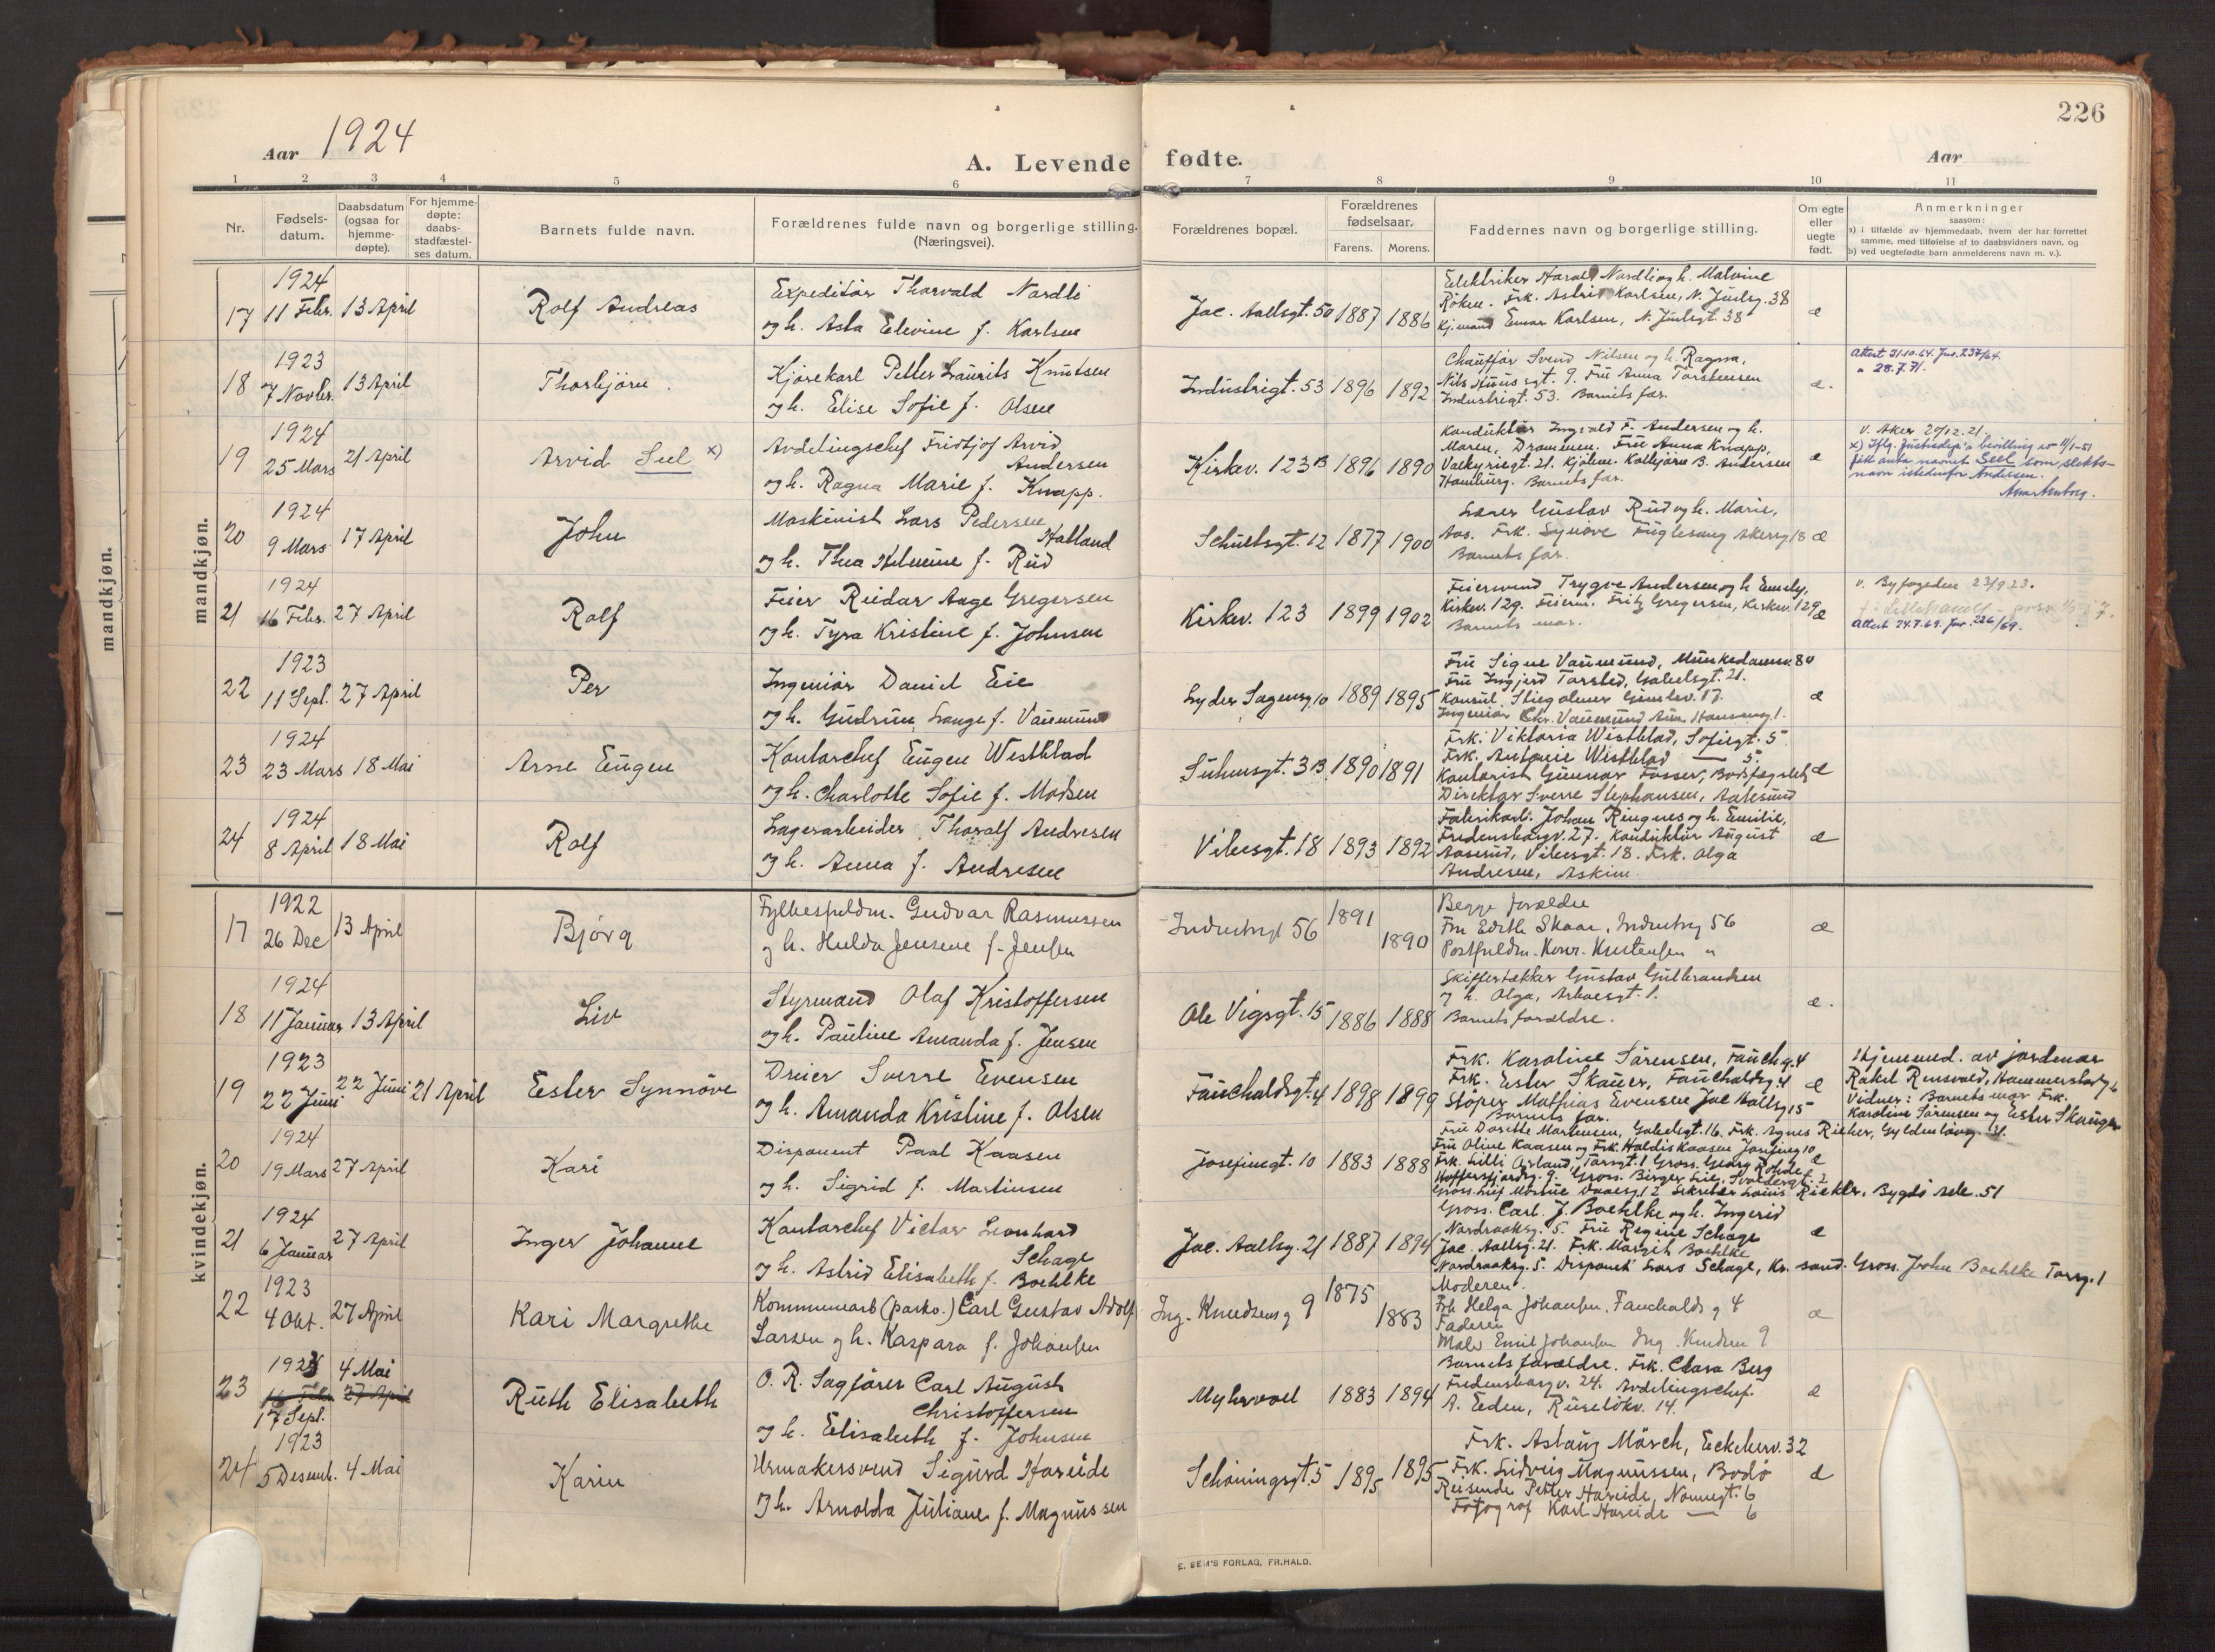 226
Aar 1924
A. Levende fødte.
Aar
1 2 3 4 5 6 7 8 9 10 11
Nr.
Fødsels-
datum.
Daabsdatum
(ogsaa for
hjemme-
døpte).
For hjemme-
døpte:
daabs-
stadfæstel-
ses datum.
Barnets fulde navn.
Forældrenes fulde navn og borgerlige stilling.
(Næringsvei).
Forældrenes bopæl.
Forældrenes
fødselsaar.
Farens. Morens.
Faddernes navn og borgerlige stilling.
Om egte
eller
uegte
født.
Anmerkninger
saasom:
a) i tilfælde av hjemmedaab, hvem der har forrettet
samme, med tilføielse af to daabsvidners navn, og
b) ved uegtefødte barn anmelderens navn m. v.).
mandkjøn.
mandkjøn.
1924
17 11 Febr. 13 April
Rolf Andreas
Expeditør Thorvald Nordli
og h. Asta Elevine f. Karlsen
Jac. Aallsgt. 50 1887 1886
Elektriker Harald Nordli og h. Malvine
Røken. Frk. Astrid Karlsen, N. Juelsg. 38
Kj.mand Einar Karlsen, N. Juelsgt. 38
æ
1923
18 7 Novbr. 13 April
Thorbjørn.
Kjørekarl Petter Laurits Knutsen
og h. Elise Sofie f. Olsen
Industrigt. 53 1896 1892
Chauffør Svend Nilsen og h. Ragna,
Nils Huus gt. 9. Fru Anna Torstensen
Industrigt. 53. Barnets far.
æ.
Attest 31.10.64. Jnr. 237/64.
" 28.7.71.
1924
19 25 Mars 21 April
Arvid Seel x)
Avdelingschef Fridtjof Arvid
Andersen
og h. Ragna Marie f. Knapp.
Kirkev. 123B 1896 1890
Konduktør Ingvald F. Andersen og h.
Maren, Drammen. Frue Anna Knapp,
Valkyriegt. 21. Kjøbm. Kolbjørn B. Andersen
Hamburg. Barnets far.
æ
v. Aker 20/12.21.
x) Iflg. Justisdep's bevilling av 11/1-51
fik anta navnet Seel som slekts-
navn istedenfor Andersen.
1924
20 9 Mars 17 April
John
Maskinist Lars Pedersen
Hatland
og h. Thea Helmine f. Rud
Schultsgt. 12 1877 1900
Lærer Gustav Rud og h. Marie,
Aas. Frk. Synøve Fuglesang Akersg 18
Barnets far.
æ
1924
21 16 Febr. 27 April
Rolf
Feier Reidar Aage Gregersen
og h. Tyra Kristine f. Johnsen
Kirkev. 123 1899 1902
Feiersvend Trygve Andersen og h Emely,
Kirkev. 129. Feierm. Fritz Gregersen, Kirkev. 129
Barnets mor.
æ
v. Byfogeden 23/9 23.
Attest 24.7.69. Jnr. 226/69.
1923
22 11 Sept. 27 April
Per
Ingeniør Daniel Eie
og h. Gudrun Lange f. Vaumund
Lyder Sagensg. 10 1889 1895
Fru Signe Vaumund, Munkedamsv. 80
Fru Ingjerd Torsted, Gabelsgt. 21.
Konsul Stiegolmer Gimlev. 17.
Ingeniør Chr. Vaumund Aun Hansensg 1.
æ
1924
23 23 Mars 18 Mai
Arne Eugen
Kontorchef Eugen Westblad
og h. Charlotte Sofie f. Madsen
Suhmsgt. 3B. 1890 1891
Frk. Viktoria Westblad, Sofiegt. 5
Frk. Antonie Westblad — 5.
Kontorist Gunnar Fosser, Bodsfægslet
Direktør Sverre Stephansen, Aalesund
æ
1924
24 8 April 18 Mai
Rolf
Lagerarbeider Thoralf Andresen
og h. Anna f. Andresen
Vibesgt. 18 1893 1892
Fabrikarb. Johan Ringnes og h. Emilie,
Fredensborgv. 27. Konduktør August
Aaserud, Vibesgt. 18. Frk. Olga
Andresen, Askim.
æ
kvindekjøn.
1922
17 26 Dec 13 April
Bjørg
Fylkesfuldm. Gudvar Rasmussen
og h. Hulda Jensene f. Jensen
Industrigt 56 1891 1890
Begge forældre
Fru Edith Skaar, Industrig 56
Postfuldm. Konr. Kristensen "
æ
1924
18 11 Januar 13 April
Liv
Styrmand Olaf Kristoffersen
og h. Pauline Amanda f. Jensen
Ole Vigsgt. 15 1886 1888
Skiffertækker Gustav Gulbrandsen
og h. Olga, Arboesgt. 1.
Barnets forældre.
æ.
1923
19 22 Juni 22 Juni 21 April
Ester Synnøve
Dreier Sverre Evensen
og h. Amanda Kristine f. Olsen
Fauchaldsgt. 4 1898 1899
Frk. Karoline Sørensen, Fauchg. 4
Frk. Ester Skauer, Fauchaldsg. 4
Støper Mathias Evensen Jac Aallsg 15
Barnets far.
æ
Hjemmed. av jordmor
Rakel Rensvold, Hammerstadg 6
Vidner: Barnets mor Frk.
Karoline Sørensen og Ester Skauger
1924
20 19 Mars 27 April
Kari
Disponent Paal Kaasen
og h. Sigrid f. Martinsen
Josefinegt. 10 1883 1888
Fru Dorethe Martinsen, Gabelsgt. 16. Frk. Agnes Riekter, Gyldenløvsg. 21.
Fru Oline Kaasen og Frk. Haldis Kaasen Josefineg 10
Frk. Lilli Orland, Torsgt. 1 Gross. Georg Rohde
Hoffersfjordg. 9. Gross. Birger Lie, Svoldergt. 2
Gross. Leif Mostue Daaesg. 12 Sekretær Louis Riekter, Bygdø Alle. 51
æ
1924
21 6 Januar 27 April
Inger Johanne
Kontorchef Victor Leonhard
Schage
og h. Astrid Elisabeth f. Boehlke
Jac. Aallsg. 21 1887 1894
Gross. Carl. J. Boehlke og h. Ingerid
Nordraaksg. 5. Fru Regine Schage
Jac. Aallsg. 21. Frk. Margit Boehlke
Nordraaksg. 5. Disponent Lars Schage, Kr. sund. Gross. John Boehlke Torsg. 1
æ
1923
22 4 Okt. 27 April
Kari Margrethe
Kommunearb (parkv.) Carl Gustav Adolf
Larsen og h. Kaspara f. Johansen
Ing. Knudsensg 9 1875 1883
Moderen.
Frk Helga Johansen, Fauchalds g 4
Faderen
Maler Emil Johansen Ing. Knudsen 9
æ
1923 4 Mai
23 16 Febr. 27 April
17 Sept.
Ruth Elisabeth
O. R. Sagfører Carl August
Christoffersen
og h. Elisabeth f. Johnsen
Myhrvoel 1883 1894
Barnets forældre. Frk. Clara Berg
Fredensborgv. 24. Avdelingschef
A. Eeden, Ruseløkv. 14.
æ
1923
24 5 Desemb. 4 Mai
Karin
Urmakersvend Sigurd Hareide
og h. Arnolda Juliane f. Magnussen
Schøningsgt. 5 1895 1895
Frk. Aslaug Mørch, Eckebergv. 32
Frk. Ludvig Magnussen, Bodø
Reisende Petter Hareide, Nonnegt. 6
Fotograf Karl Hareide — 6
æ
E. SEM'S FORLAG, FR.HALD.